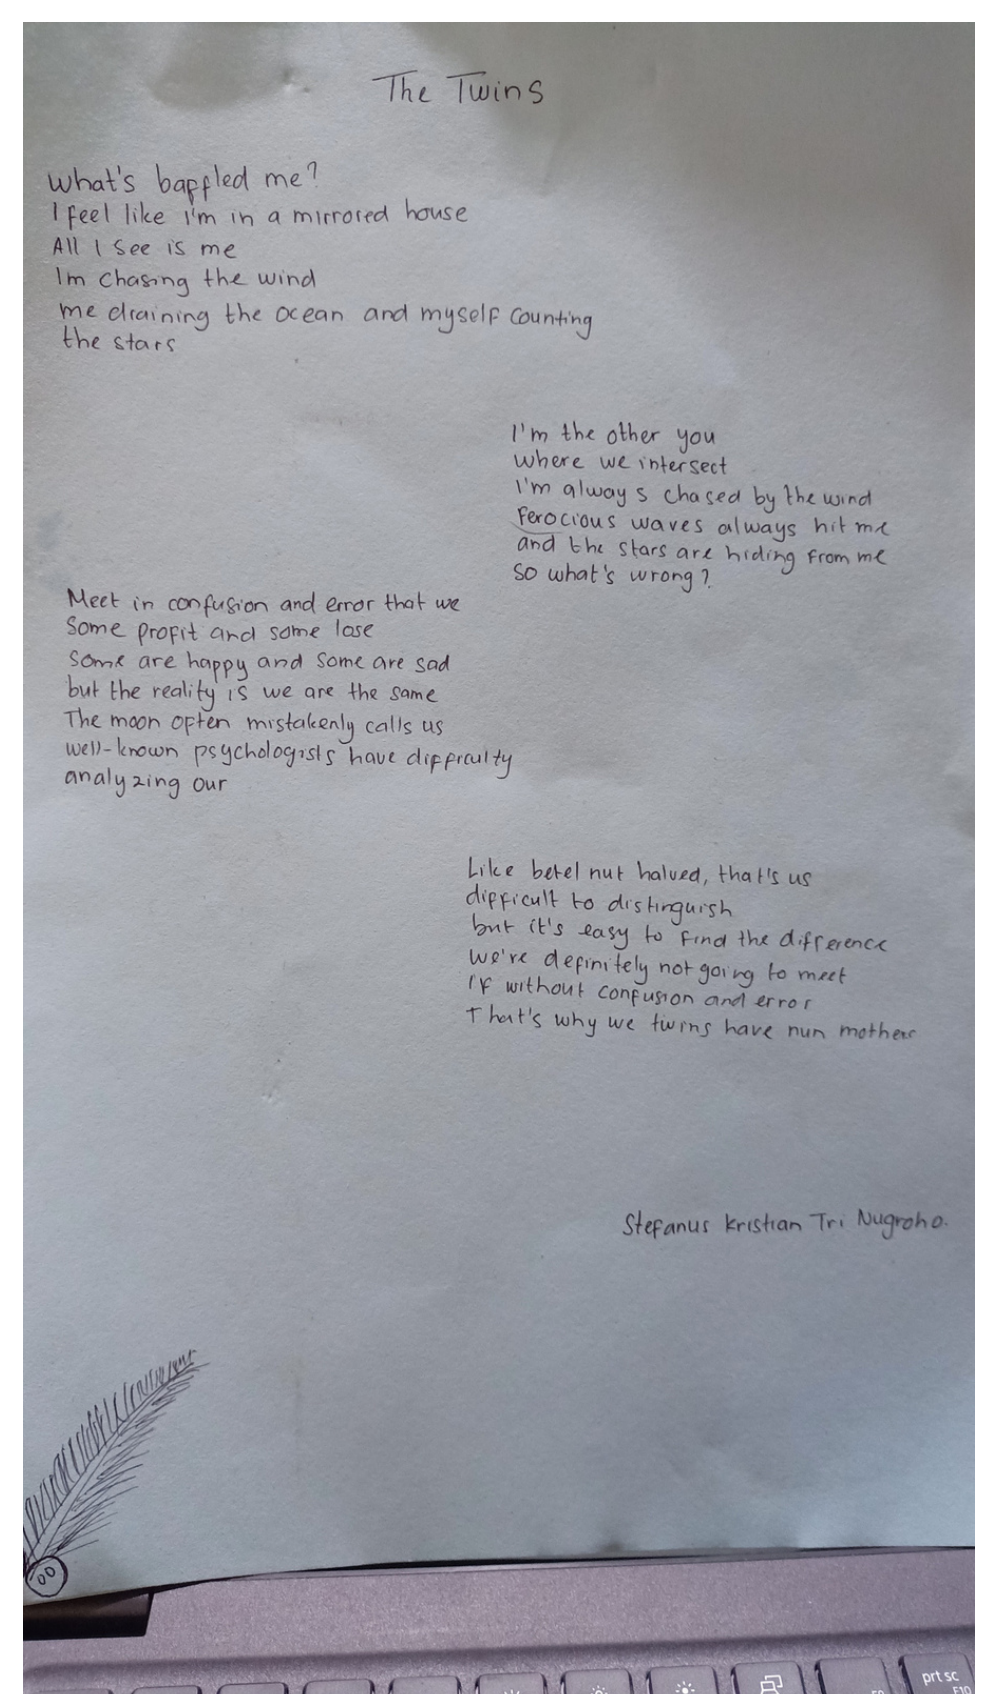 The Twins
What's baffled me?
I feel like i'm in a mirrored house
All I See is me
Im chasing the wind
me draining the ocean and myself counting
the stars
I'm the other you
where we intersect
I'm always chased by the wind
Ferocious waves always hit me
and the stars are hiding from me
So what's wrong?
Meet in confusion and error that we
Some profit and some lose
Some are happy and some are sad
but the reality is we are the same
The moon often mistakenly calls us
well-known psychologists have difficulty
analyzing our
Like betel nut halved, that's us
difficult to distinguish
but it's easy to find the difference
we're definitely not going to meet
if without confusion and error
That's why we twins have nun mother
Stefanus Kristian Tri Nugroho.
prt sc
F10